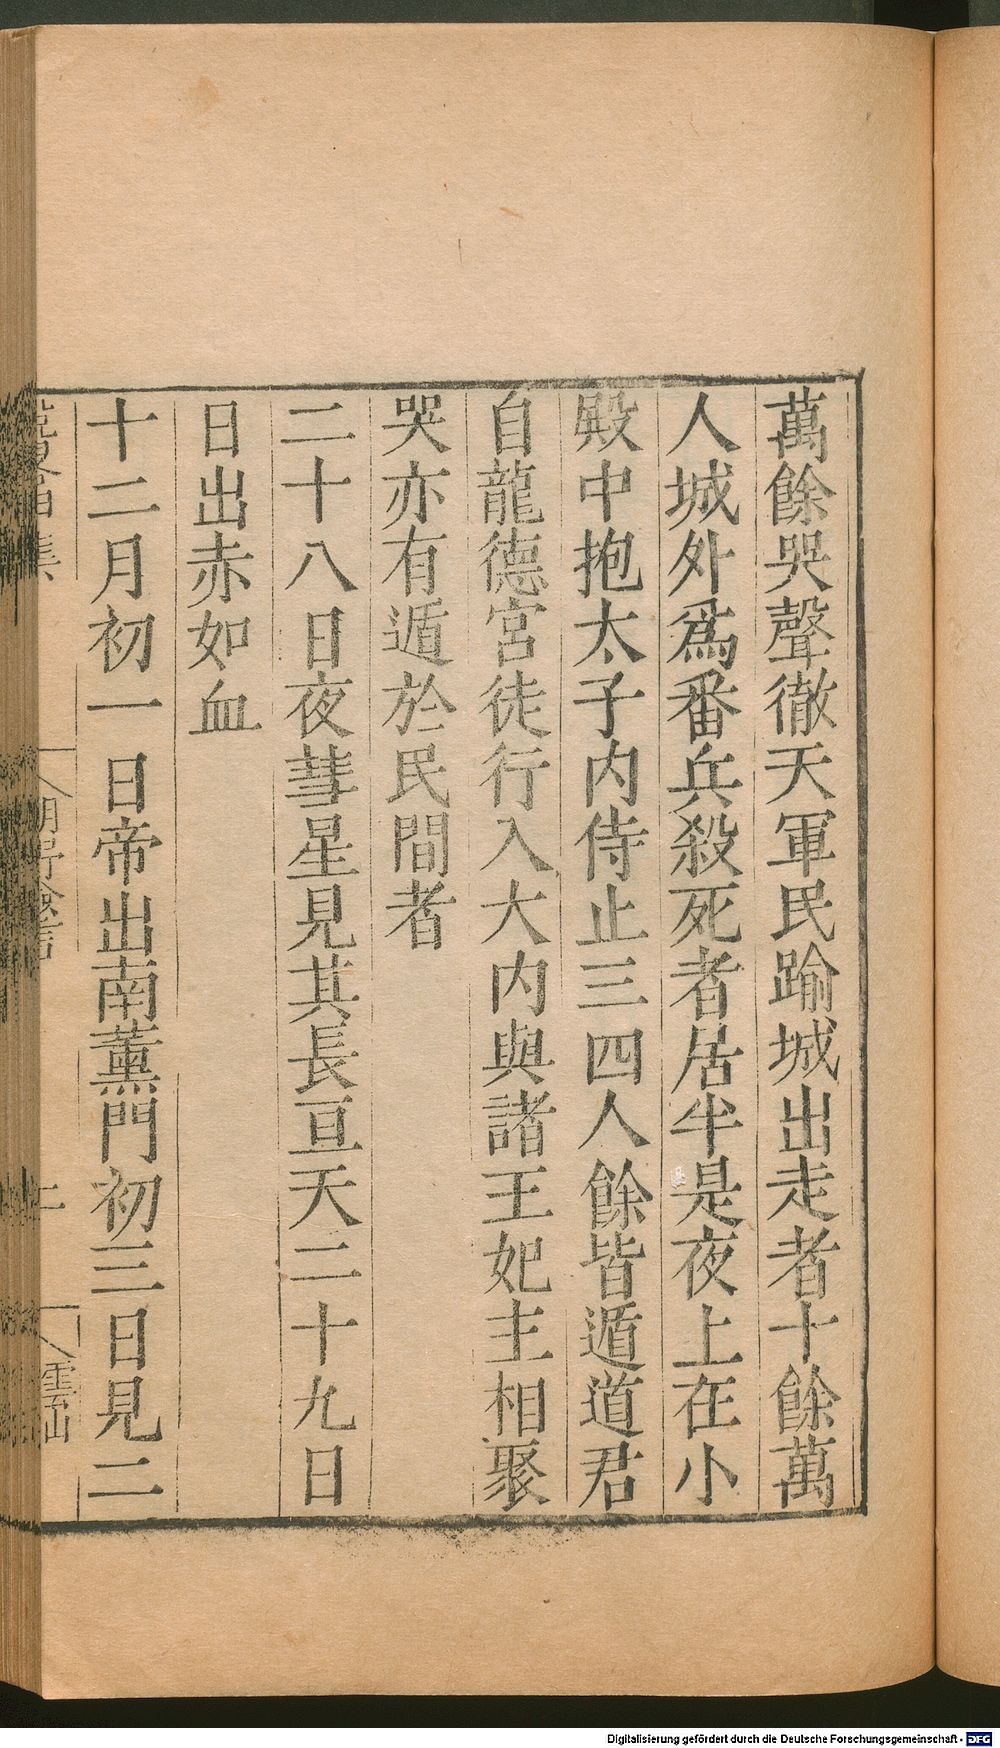 萬餘哭聲徹天軍民踰城出走者十餘萬
人城外爲番兵殺死者居半是夜上在小
殿中抱太子内侍止三四人餘皆遁道君
自龍德宮徒行入大内與諸王妃主相聚
哭亦有遁於民間者
二十八日夜彗星見其長亘天二十九日
日出赤如血
十二月初一日帝出南薰門初三日見二
Digitalisierung gefördert durch die Deutsche Forschungsgemeinschaft - DFG